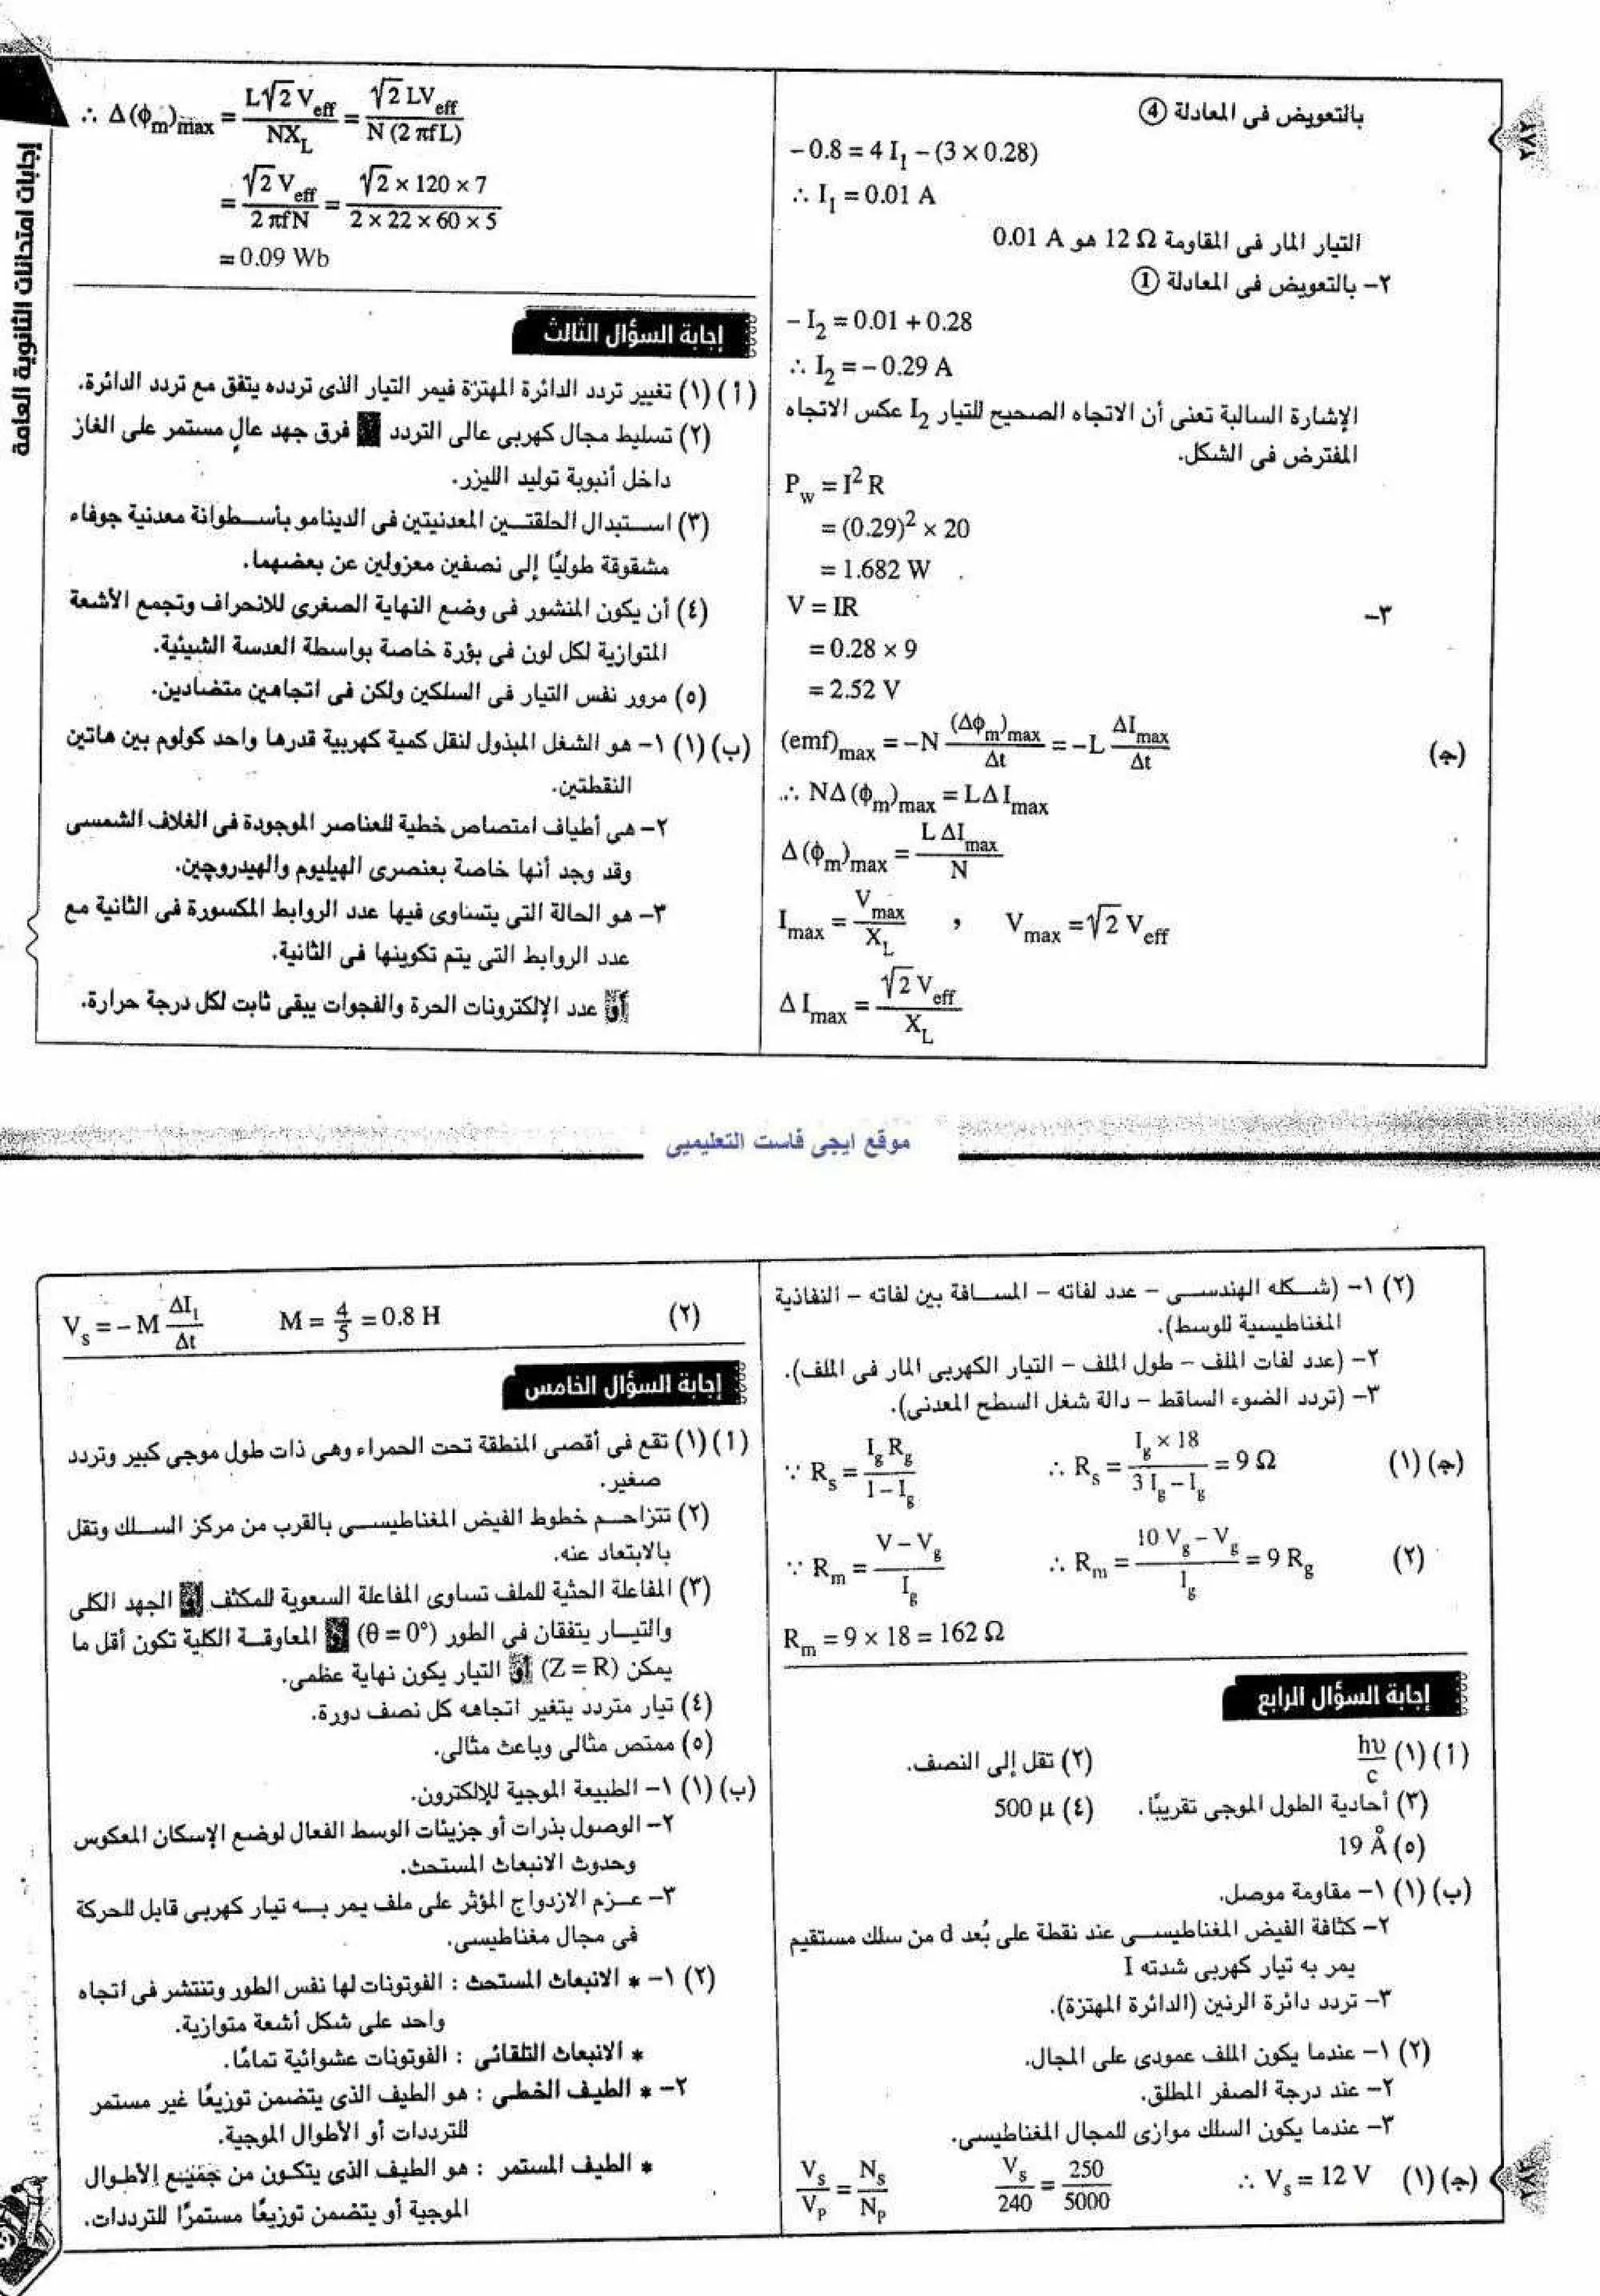 ٢٨٢
إجابات امتحانات الثانوية العامة
بالتعويض فى المعادلة ④
- 0.8 = 4 I₁ - (3 × 0.28)
∴ I₁ = 0.01 A
التيار المار فى المقاومة 12 Ω هو 0.01 A
٢- بالتعويض فى المعادلة ①
- I₂ = 0.01 + 0.28
∴ I₂ = - 0.29 A
الإشارة السالبة تعنى أن الاتجاه الصحيح للتيار I₂ عكس الاتجاه
المفترض فى الشكل.
P_w = I² R
= (0.29)² × 20
= 1.682 W
٣- V = IR
= 0.28 × 9
= 2.52 V
(جـ) (emf)_max = -N (Δϕ_m)_max / Δt = -L ΔI_max / Δt
∴ NΔ(ϕ_m)_max = LΔI_max
Δ(ϕ_m)_max = L ΔI_max / N
I_max = V_max / X_L , V_max = √2 V_eff
Δ I_max = √2 V_eff / X_L
∴ Δ(ϕ_m)_max = L√2 V_eff / NX_L = √2 LV_eff / N (2 πfL)
= √2 V_eff / 2 πfN = √2 × 120 × 7 / 2 × 22 × 60 × 5
= 0.09 Wb
إجابة السؤال الثالث
(أ) (١) تغيير تردد الدائرة المهتزة فيمر التيار الذى تردده يتفق مع تردد الدائرة.
(٢) تسليط مجال كهربى عالى التردد فرق جهد عالٍ مستمر على الغاز
داخل أنبوبة توليد الليزر.
(٣) استبدال الحلقتين المعدنيتين فى الدينامو بأسطوانة معدنية جوفاء
مشقوقة طوليًا إلى نصفين معزولين عن بعضهما.
(٤) أن يكون المنشور فى وضع النهاية الصغرى للانحراف وتجمع الأشعة
المتوازية لكل لون فى بؤرة خاصة بواسطة العدسة الشيئية.
(٥) مرور نفس التيار فى السلكين ولكن فى اتجاهين متضادين.
(ب) (١) ١- هو الشغل المبذول لنقل كمية كهربية قدرها واحد كولوم بين هاتين
النقطتين.
٢- هى أطياف امتصاص خطية للعناصر الموجودة فى الغلاف الشمسى
وقد وجد أنها خاصة بعنصرى الهيليوم والهيدروچين.
٣- هو الحالة التى يتساوى فيها عدد الروابط المكسورة فى الثانية مع
عدد الروابط التى يتم تكوينها فى الثانية.
أو عدد الإلكترونات الحرة والفجوات يبقى ثابت لكل درجة حرارة.
موقع ايجى فاست التعليميى
(٢) ١- (شكله الهندسى - عدد لفاته - المسافة بين لفاته - النفاذية
المغناطيسية للوسط).
٢- (عدد لفات الملف - طول الملف - التيار الكهربى المار فى الملف).
٣- (تردد الضوء الساقط - دالة شغل السطح المعدنى).
(جـ) (١) ∵ R_s = I_g R_g / I - I_g ∴ R_s = I_g × 18 / 3 I_g - I_g = 9 Ω
(٢) ∵ R_m = V - V_g / I_g ∴ R_m = 10 V_g - V_g / I_g = 9 R_g
R_m = 9 × 18 = 162 Ω
إجابة السؤال الرابع
(أ) (١) hυ / c (٢) تقل إلى النصف.
(٣) أحادية الطول الموجى تقريبًا. (٤) 500 μ
(٥) 19 Å
(ب) (١) ١- مقاومة موصل.
٢- كثافة الفيض المغناطيسى عند نقطة على بُعد d من سلك مستقيم
يمر به تيار كهربى شدته I
٣- تردد دائرة الرنين (الدائرة المهتزة).
(٢) ١- عندما يكون الملف عمودى على المجال.
٢- عند درجة الصفر المطلق.
٣- عندما يكون السلك موازى للمجال المغناطيسى.
(جـ) (١) V_s / V_P = N_s / N_P V_s / 240 = 250 / 5000 ∴ V_s = 12 V
(٢) V_s = - M ΔI₁ / Δt M = 4/5 = 0.8 H
إجابة السؤال الخامس
(أ) (١) تقع فى أقصى المنطقة تحت الحمراء وهى ذات طول موجى كبير وتردد
صغير.
(٢) تتزاحم خطوط الفيض المغناطيسى بالقرب من مركز السلك وتقل
بالابتعاد عنه.
(٣) المفاعلة الحثية للملف تساوى المفاعلة السعوية للمكثف أو الجهد الكلى
والتيار يتفقان فى الطور (θ = 0°) أو المعاوقة الكلية تكون أقل ما
يمكن (Z = R) أو التيار يكون نهاية عظمى.
(٤) تيار متردد يتغير اتجاهه كل نصف دورة.
(٥) ممتص مثالى وباعث مثالى.
(ب) (١) ١- الطبيعة الموجية للإلكترون.
٢- الوصول بذرات أو جزيئات الوسط الفعال لوضع الإسكان المعكوس
وحدوث الانبعاث المستحث.
٣- عزم الازدواج المؤثر على ملف يمر به تيار كهربى قابل للحركة
فى مجال مغناطيسى.
(٢) ١- * الانبعاث المستحث : الفوتونات لها نفس الطور وتنتشر فى اتجاه
واحد على شكل أشعة متوازية.
* الانبعاث التلقائى : الفوتونات عشوائية تمامًا.
٢- * الطيف الخطى : هو الطيف الذى يتضمن توزيعًا غير مستمر
للترددات أو الأطوال الموجية.
* الطيف المستمر : هو الطيف الذى يتكون من جميع الأطوال
الموجية أو يتضمن توزيعًا مستمرًا للترددات.